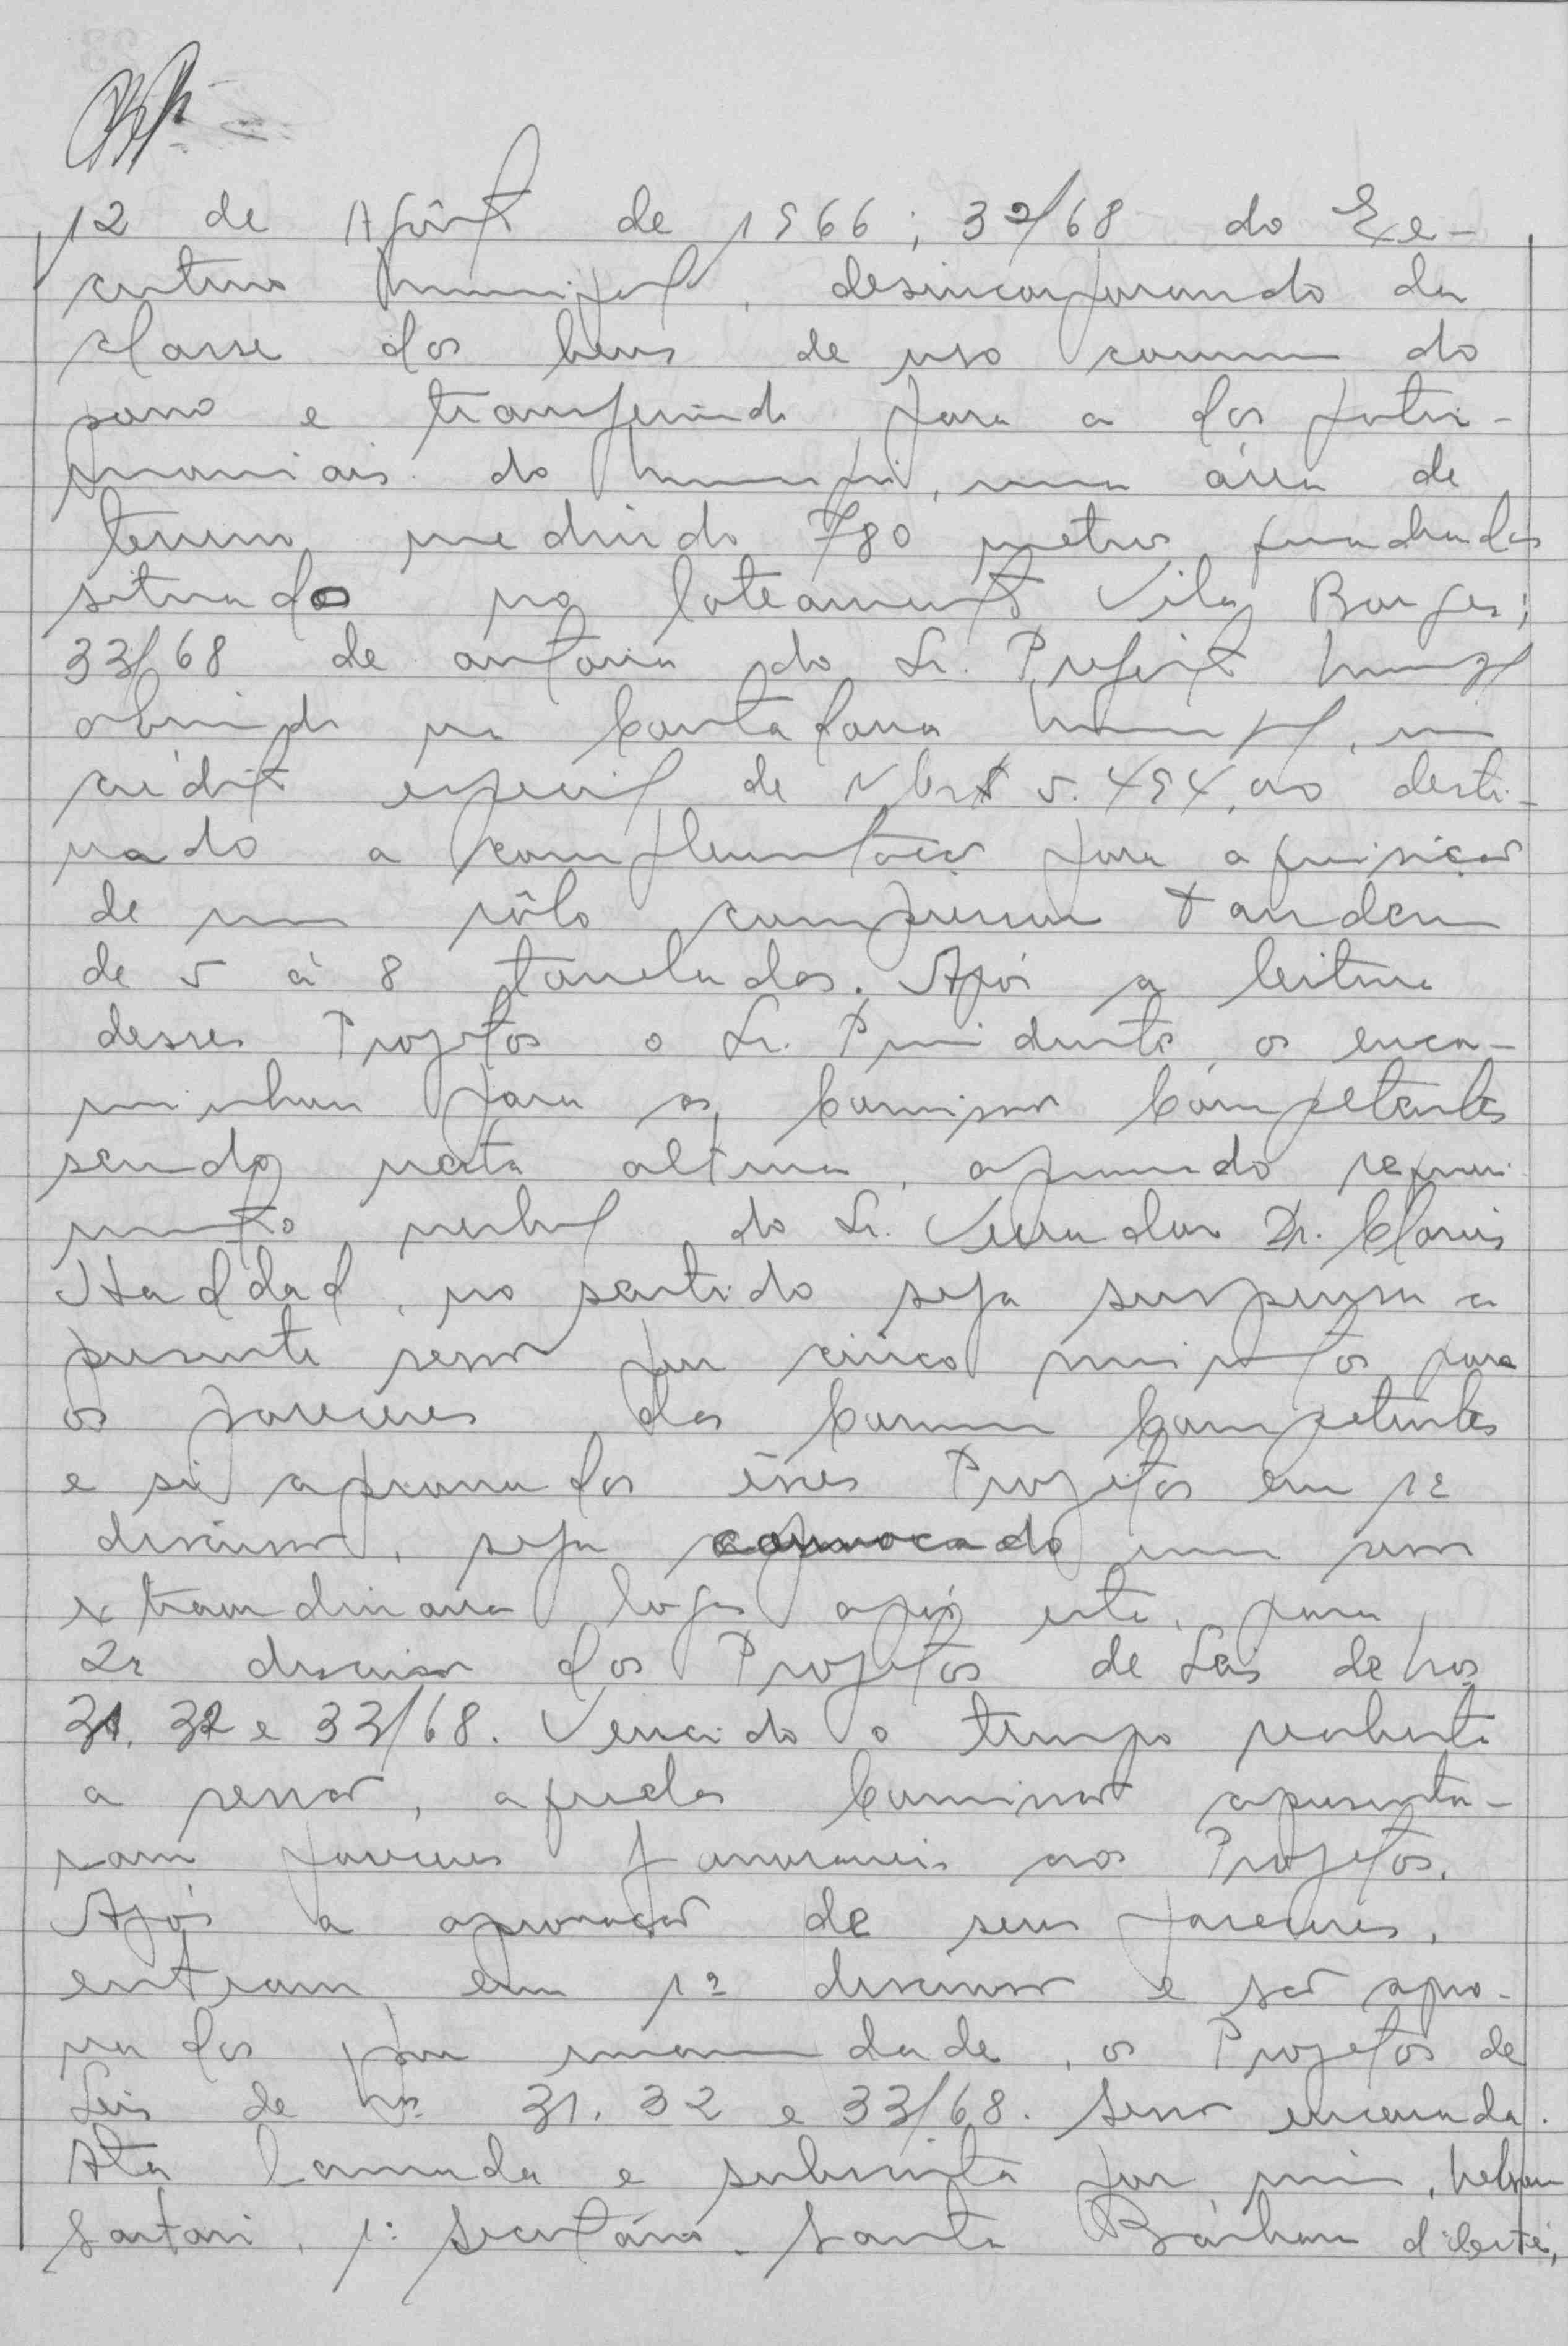 12 de Agôsto de 1966; 32/68 do Exe-
cutivo Municipal, desincorporando da
classe dos bens de uso comum do
povo e transferindo para a dos patri-
moniais do Municipio, uma área de
terreno medindo 780 metros quadrados
situado no loteamento Vila Borges;
33/68 de autoria do Sr. Prefeito Municipal
abrindo na Contadoria Municipal, um
crédito especial de NCr$ 5.494,00 desti-
nado a complementação para aquisição
de um rôlo compressor tandem
de 5 à 8 toneladas. Após a leitura
desses Projetos o Sr. Presidente, os enca-
minhou para as Comissões Competentes
sendo nesta altura, aprovado requeri-
mento verbal do Sr. Vereador Dr. Clovis
Haddad, no sentido seja suspensa a
presente sessão por cinco minutos para
os pareceres das Comissões Competentes
e si aprovados êsses Projetos em 1ª
discussão, seja convocado uma sessão
extraordinaria logo após esta, para
2ª discussão dos Projetos de Leis de nos
31, 32 e 33/68. Vencido o tempo reaberta
a sessão, aquelas Comissões apresenta-
ram pareceres favoraveis aos Projetos.
Após a aprovação de seus pareceres,
entram em 1ª discussão e são apro-
vados por unanimidade, os Projetos de
Leis de nos 31, 32 e 33/68. Sessão encerrada.
Ata lavrada e subscrita por mim, Nelson
Sartori, 1º secretário. Santa Bárbara d'Oeste,